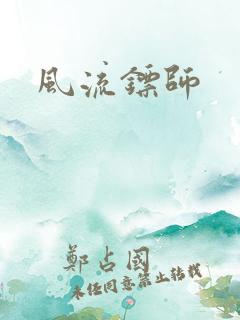 風流鏢師
鄭占國
未经同意禁止转载